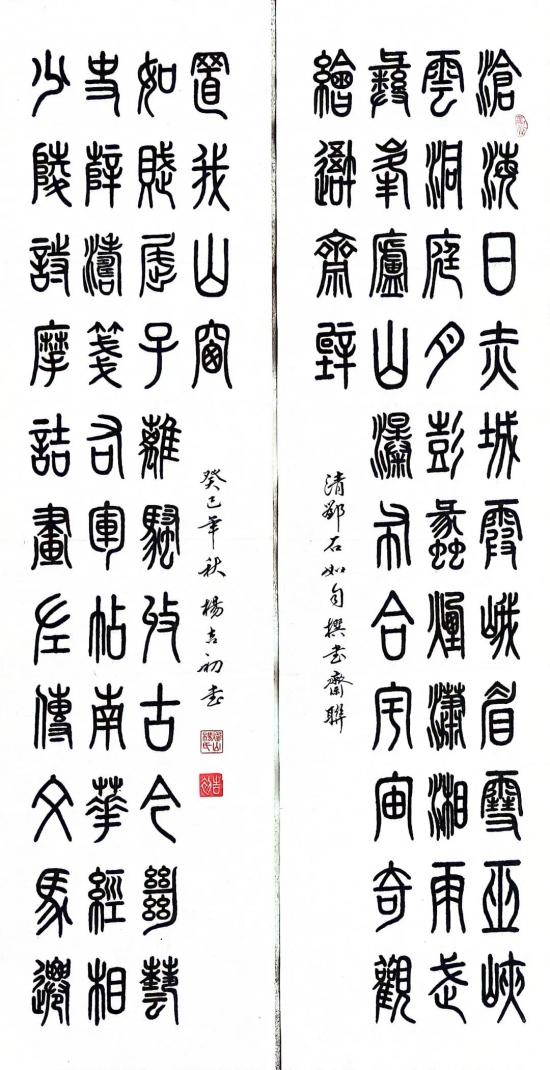 滄海日赤城霞峨眉雪巫峽
雲洞庭月彭蠡煙瀟湘雨武
彝峯廬山瀑布合宇宙奇觀
繪吾齋壁
清鄧石如自撰書齋聯
少陵詩摩詰畫左傳文馬遷
史薛濤箋右軍帖南華經相
如賦屈子離騷收古今絕藝
置我山窗
癸巳年秋楊吉初書